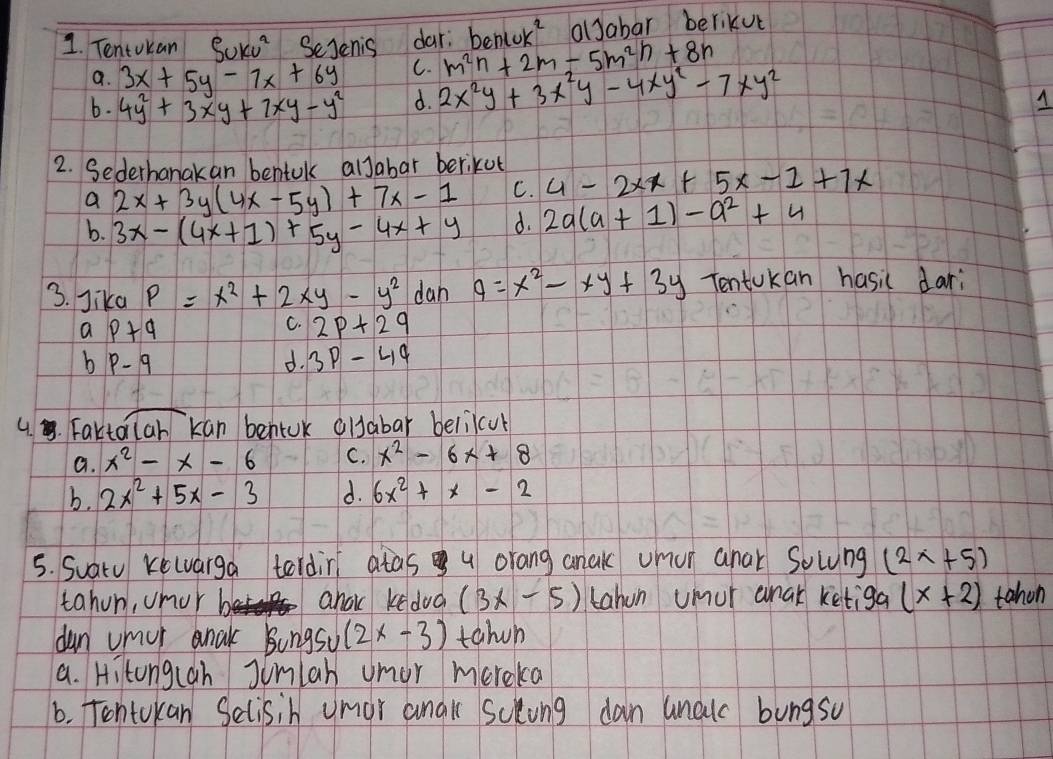 1. Tentukan Suku² Sejenis dari bentuk² aljabar berikut
a. 3x + 5y - 7x + 6y
c. m²n + 2m - 5m²n + 8n
b. 4y² + 3xy + 7xy - y²
d. 2x²y + 3x²y - 4xy² - 7xy²
1
2. Sederhanakan bentuk aljabar berikut
a 2x + 3y(4x - 5y) + 7x - 1
c. 4 - 2xx + 5x - 1 + 7x
b. 3x - (4x+1) + 5y - 4x + y
d. 2a(a + 1) - a² + 4
3. Jika P = x² + 2xy - y² dan q = x² - xy + 3y Tentukan hasil dari
a p+q
c. 2p+2q
b p-q
d. 3p - 4q
4. Faktorlah kan bentuk aljabar berikut
a. x² - x - 6
c. x² - 6x + 8
b. 2x² + 5x - 3
d. 6x² + x - 2
5. Suatu keluarga terdiri atas 4 orang anak umur anak Sulung (2x+5)
tahun, umur anak kedua (3x - 5) tahun umur anak ketiga (x+2) tahun
dan umur anak Bungsu (2x-3) tahun
a. Hitunglah Jumlah umur mereka
b. Tentukan Selisih umur anak Sulung dan anak bungsu